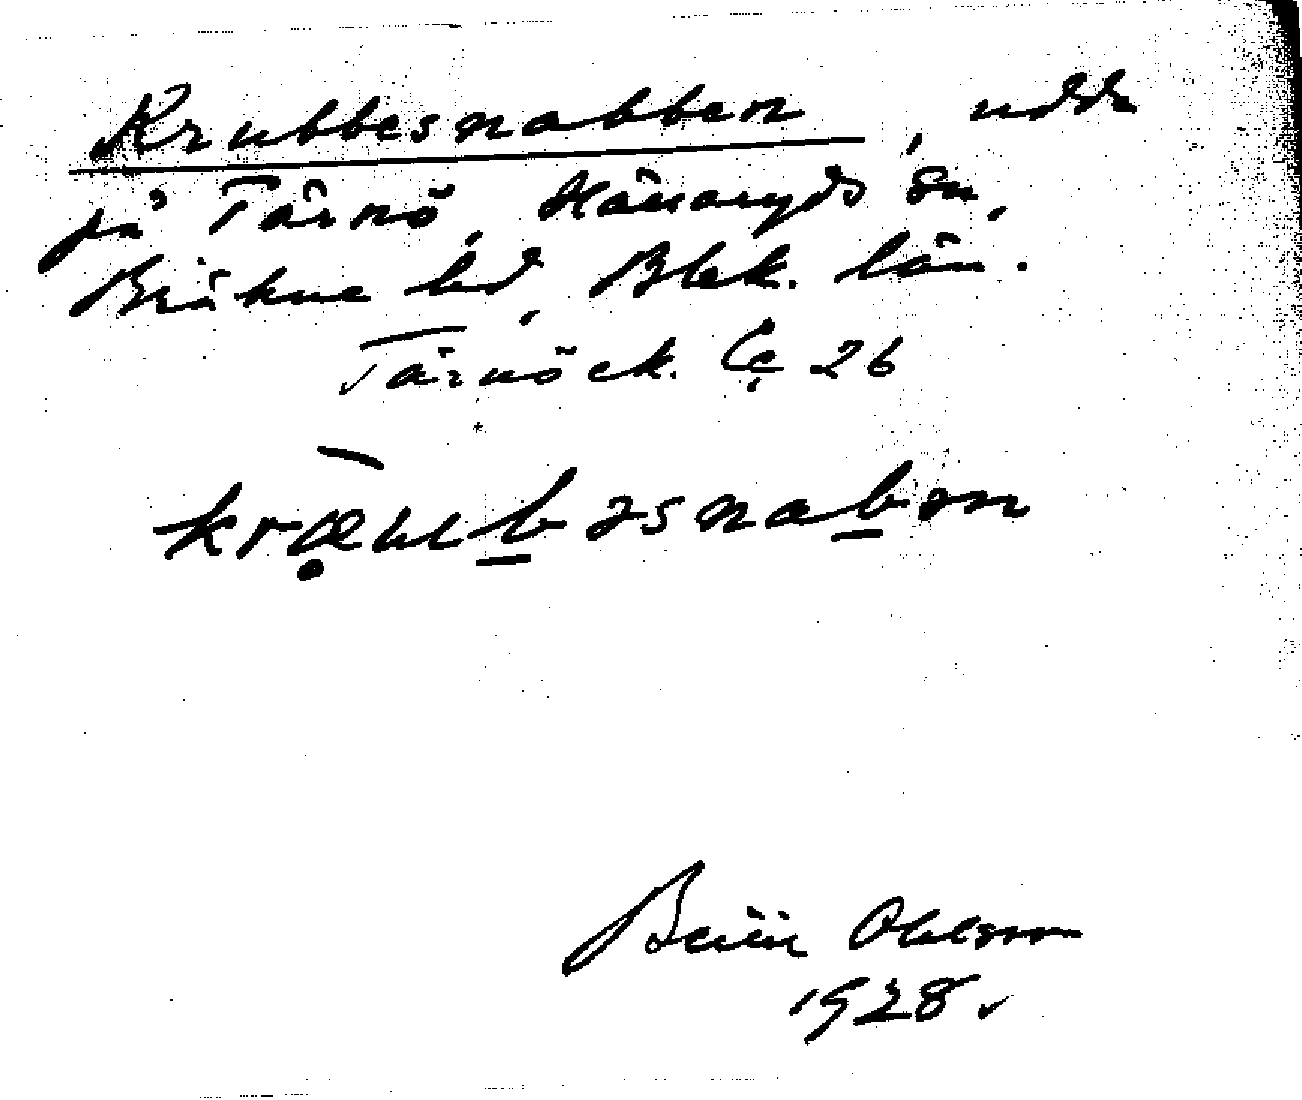 Krubbesnabben, udde
på Tärnö, Hällaryds sn,
Bräkne hd, Blek. län.
Tärnö ek. Cç 26
kræubəsnabən
Ohlsson
1928